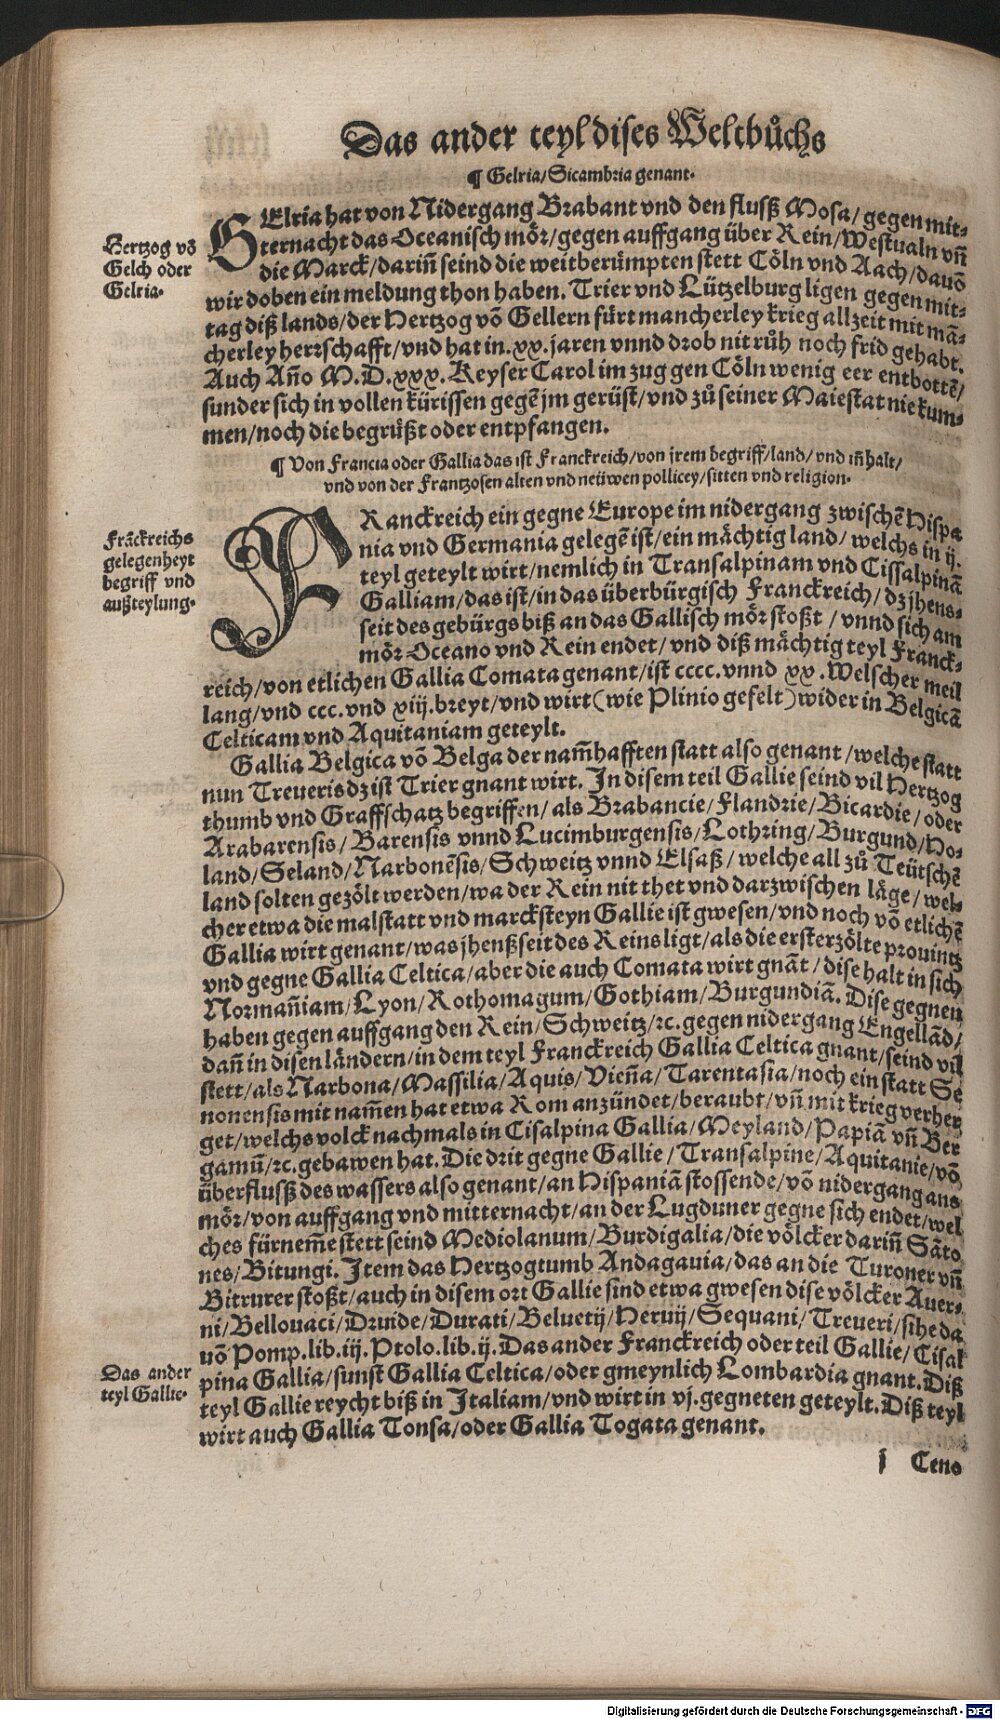 Das ander teyl dises Weltbůchs
¶ Gelria/Sicambria genant.
Hertzog võ
Gelch oder
Gelria.
GElria hat von Nidergang Brabant vnd den flusß Mosa/gegen mit-
ternacht das Oceanisch mör/gegen auffgang über Rein/Westualn vñ
die Marck/dariñ seind die weitberümpten stett Cöln vnd Aach/dauõ
wir doben ein meldung thon haben. Trier vnd Lützelburg ligen gegen mit-
tag diß lands/der Hertzog võ Gellern fürt mancherley krieg allzeit mit mã-
cherley herrschafft/vnd hat in.xx.jaren vnnd drob nit růh noch frid gehabt.
Auch Año M.D.xxx. Keyser Carol im zug gen Cöln wenig eer entbottẽ/
sunder sich in vollen kürissen gegẽ jm gerüst/vnd zů seiner Maiestat nie kum-
men/noch die begrüßt oder entpfangen.
¶ Von Francia oder Gallia das ist Franckreich/von jrem begriff/land/vnd iñhalt/
vnd von der Frantzosen alten vnd neüwen pollicey/sitten vnd religion.
Frãckreichs
gelegenheyt
begriff vnd
außteylung.
FRanckreich ein gegne Europe im nidergang zwischẽ Hispa
nia vnd Germania gelegẽ ist/ein mächtig land/welchs in ij.
teyl geteylt wirt/nemlich in Transalpinam vnd Cissalpinã
Galliam/das ist/in das überbürgisch Franckreich/dz jhens-
seit des gebürgs biß an das Gallisch mör stoßt/vnnd sich am
mör Oceano vnd Rein endet/vnd diß mächtig teyl Franck-
reich/von etlichen Gallia Comata genant/ist cccc.vnnd xx.Welscher meil
lang/vnd ccc.vnd xiij.breyt/vnd wirt(wie Plinio gefelt)wider in Belgicã
Celticam vnd Aquitaniam geteylt.
Gallia Belgica võ Belga der nam̃hafften statt also genant/welche statt
nun Treueris dz ist Trier gnant wirt. In disem teil Gallie seind vil Hertzog
thumb vnd Graffschatz begriffen/als Brabancie/Flandrie/Bicardie/oder
Arabarensis/Barensis vnnd Lucimburgensis/Lothring/Burgund/Ho-
land/Seland/Narbonẽsis/Schweitz vnnd Elsaß/welche all zů Teütschẽ
land solten gezölt werden/wa der Rein nit thet vnd darzwischen läge/wel-
cher etwa die malstatt vnd marcksteyn Gallie ist gwesen/vnd noch võ etlichẽ
Gallia wirt genant/was jhenßseit des Reins ligt/als die ersterzölte prouintz
vnd gegne Gallia Celtica/aber die auch Comata wirt gnãt/dise halt in sich
Normañiam/Lyon/Rothomagum/Gothiam/Burgundiã. Dise gegnen
haben gegen auffgang den Rein/Schweitz/ꝛc.gegen nidergang Engellãd/
dañ in disen ländern/in dem teyl Franckreich Gallia Celtica gnant/seind vil
stett/als Narbona/Massilia/Aquis/Vieña/Tarentasia/noch ein statt Se
nonensis mit nam̃en hat etwa Rom anzündet/beraubt/vñ mit krieg verher
get/welchs volck nachmals in Cisalpina Gallia/Meyland/Papiã vñ Ber
gamũ/ꝛc.gebawen hat. Die drit gegne Gallie/Transalpine/Aquitanie/võ
überflusß des wassers also genant/an Hispaniã stossende/võ nidergang ans
mör/von auffgang vnd mitternacht/an der Lugduner gegne sich endet/wel
ches fürnem̃e stett seind Mediolanum/Burdigalia/die völcker dariñ Sãto
nes/Bitungi. Item das Hertzogtumb Andagauia/das an die Turoner vñ
Bitrurer stoßt/auch in disem ort Gallie sind etwa gwesen dise völcker Auer-
ni/Bellouaci/Druide/Durati/Beluetij/Neruij/Sequani/Treueri/sihe da
uõ Pomp.lib.iij. Ptolo.lib.ij. Das ander Franckreich oder teil Gallie/Cisal
Das ander
teyl Gallie.
pina Gallia/sunst Gallia Celtica/oder gmeynlich Lombardia gnant. Diß
teyl Gallie reycht biß in Italiam/vnd wirt in vj.gegneten geteylt. Diß teyl
wirt auch Gallia Tonsa/oder Gallia Togata genant.
j Ceno
Digitalisierung gefördert durch die Deutsche Forschungsgemeinschaft - DFG